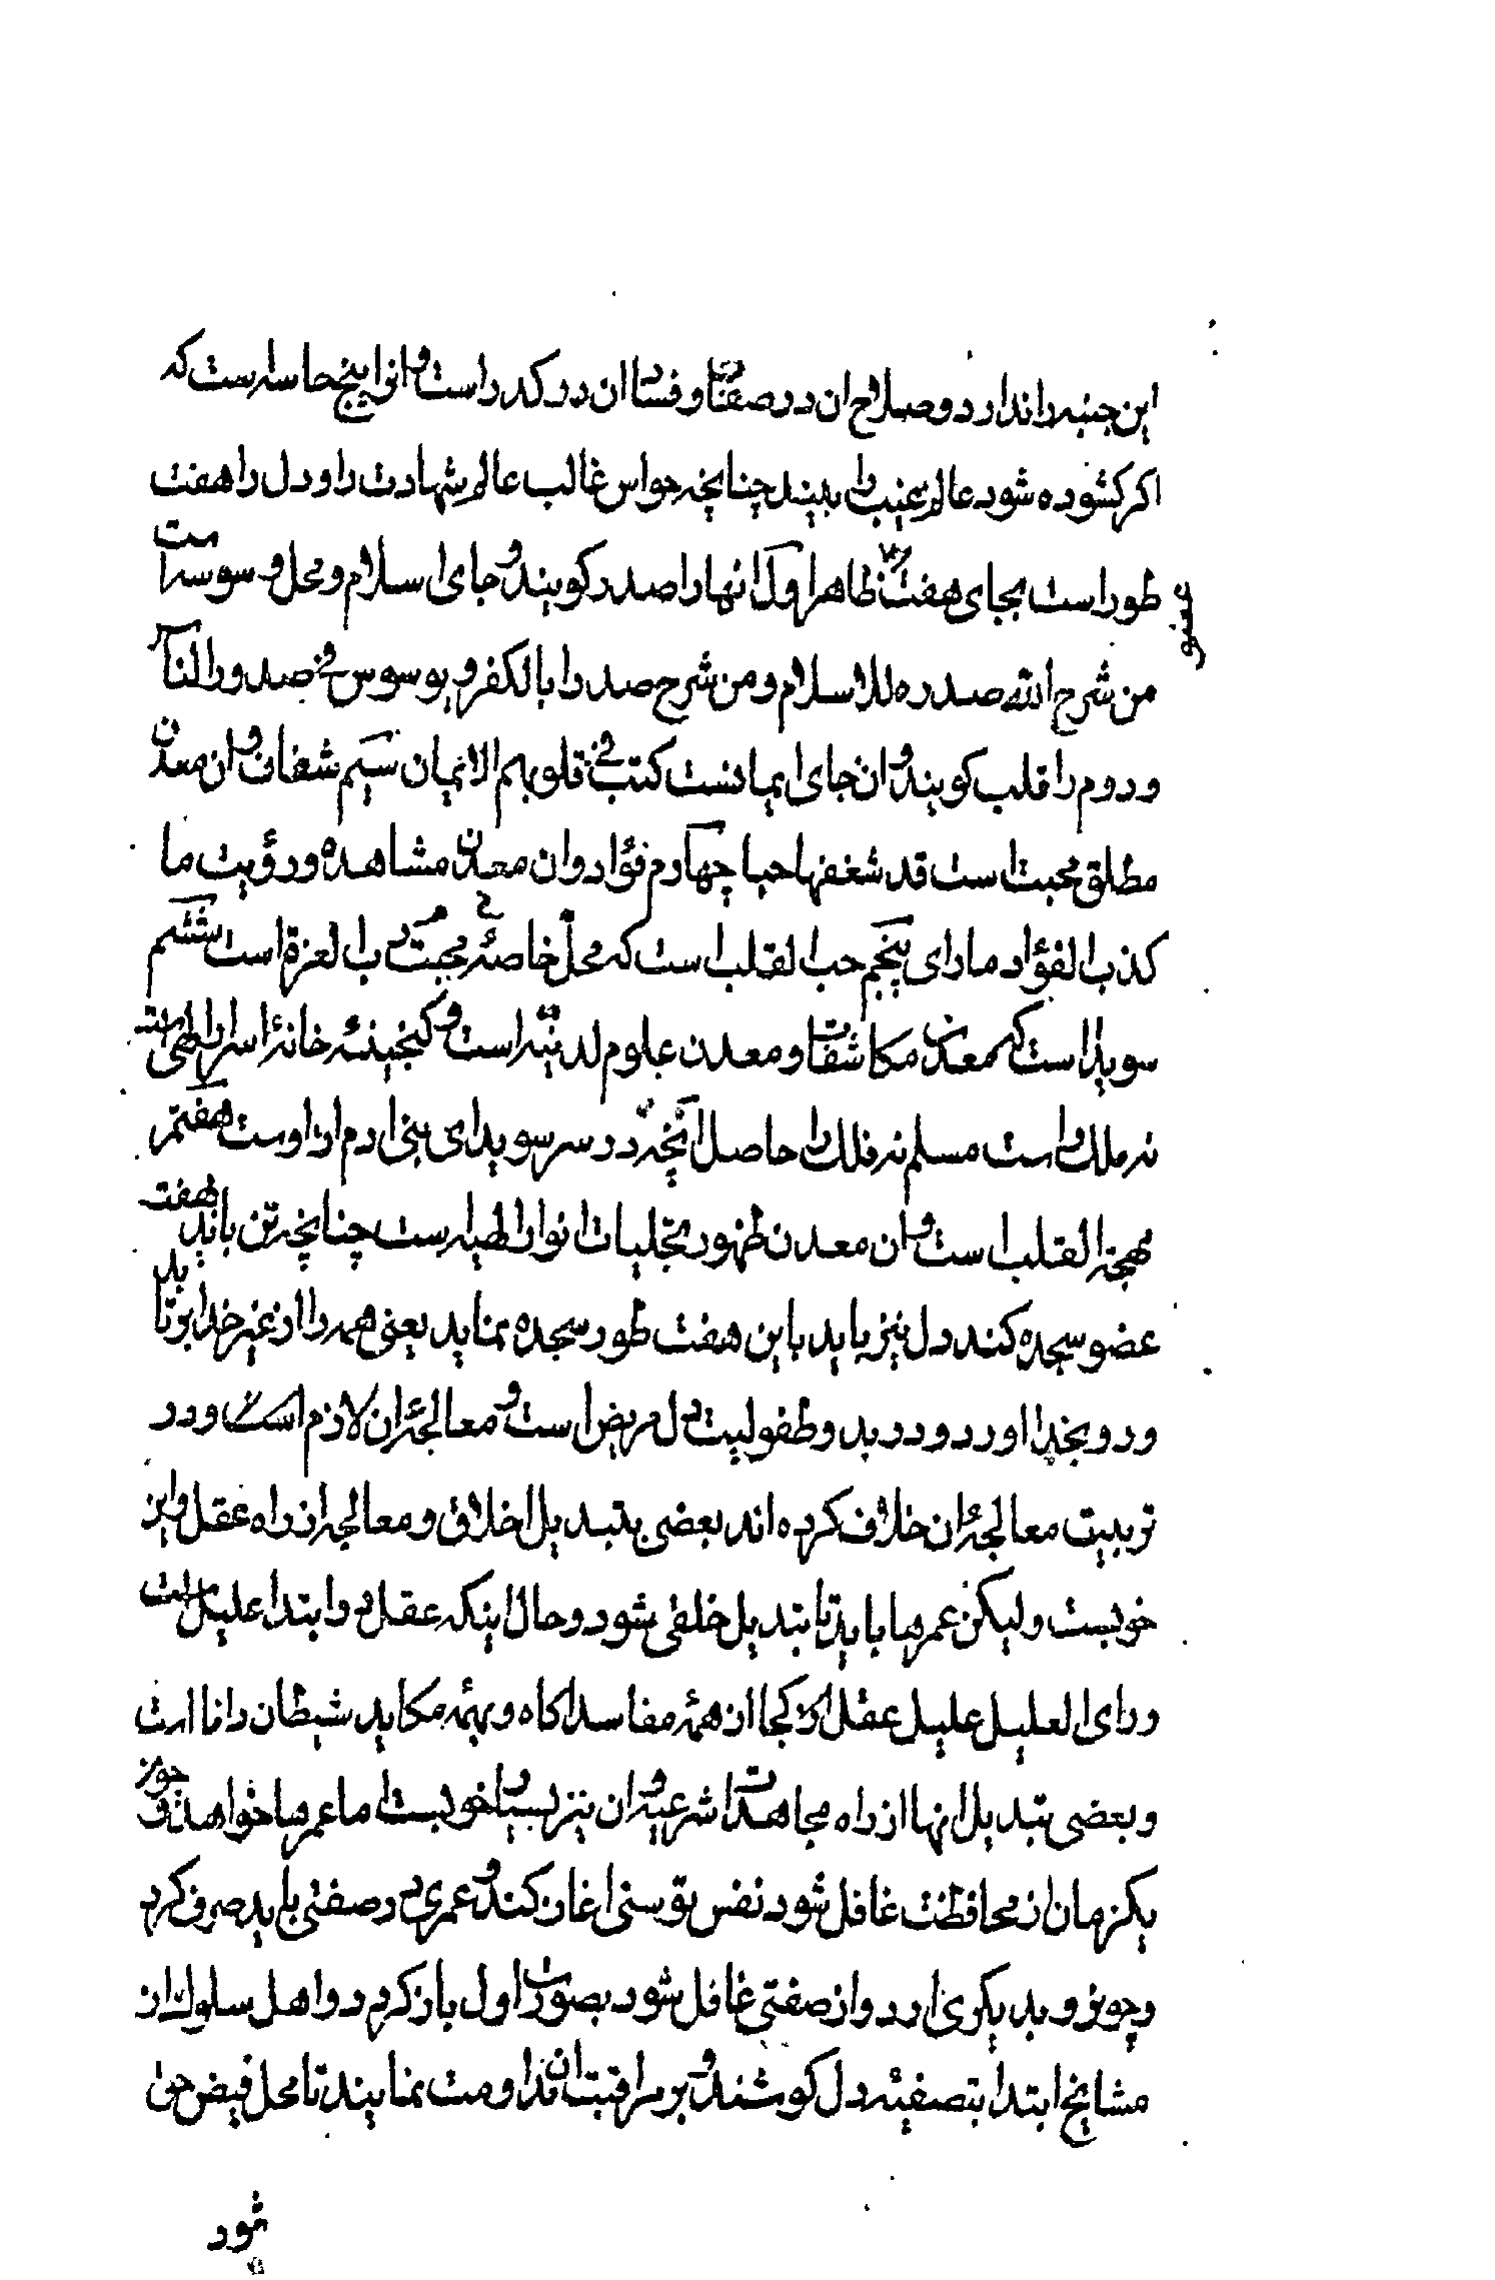 این جنبه را ندارد و صلاح ان در صفا و فساد ان در کدر است و او را پنج حاسه است که
اکر کشوده شود عالم غیب را ببیند چنانچه حواس غالب عالم شهادت را و دل را هفت
طور است بجای هفت ظاهر اول انها را صدر کویند و جای اسلام و محل وسوسه است
عضو
من شرح الله صدره للاسلام و من شرح صدرا بالکفر و یوسوس فی صدور الناس
و دوم را قلب کویند و ان جای ایمانست کتب فی قلوبهم الایمان سیم شغاف و ان معدن
مطلق محبت است قد شغفها حبا چهارم فؤاد و ان معدن مشاهده و رؤیت ما
کذب الفؤاد ما رای پنجم حب القلب است که محل خاصهٔ محبت رب العزة است ششم
سویدا است که معدن مکاشفات و معدن علوم لدنیه است و کنجینهٔ خانهٔ اسرار الهی است
نه ملک را است مسلم نه فلک را حاصل انچه در سر سویدای بنی ادم از اوست هفتم
مهجة القلب است و ان معدن ظهور تجلیات انوار الهیه است چنانچه تن باید بهفت
عضو سجده کند دل نیز باید باین هفت طور سجده نماید یعنی همه را از غیر خدا برتابد
و رو بخدا اورد و در بدو طفولیت دل مریض است و معالجهٔ ان لازم است و در
تربیت معالجهٔ ان خلاف کرده اند بعضی بتبدیل اخلاق و معالجه از راه عقل و این
خوبست ولیکن عمرها باید تا تبدیل خلقی شود و حال اینکه عقل در ابتدا علیل است
و رای العلیل علیل عقل از کجا از همهٔ مفاسد اکاه و بهمهٔ مکاید شیطان دانا است
و بعضی بتبدیل انها از راه مجاهدات شرعیه و ان نیز بسیار خوبست اما عمرها خواهد و چون
یکزمان از محافظت غافل شود نفس توسنی اغاز کند و عمری در صفتی باید صرف کرد
و چون رو بدیکری ارد و از صفتی غافل شود بصورت اول باز کردد و اهل سلوک از
مشایخ ابتدا بتصفیهٔ دل کوشند و بر مراقبت ان مداومت نمایند تا محل فیض حق
شود